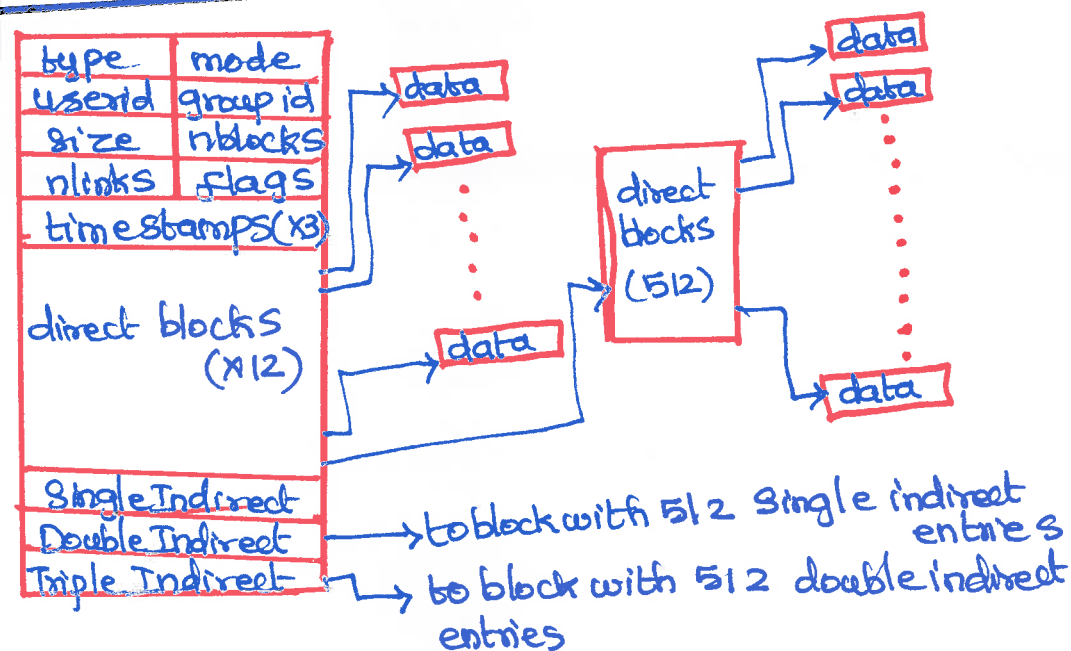 type mode
userid groupid
size nblocks
nlinks flags
timestamps(x3)
direct blocks
(x12)
Single Indirect
Double Indirect
Triple Indirect
data
data
data
direct
blocks
(512)
data
data
data
to block with 512 Single indirect
entries
to block with 512 double indirect
entries